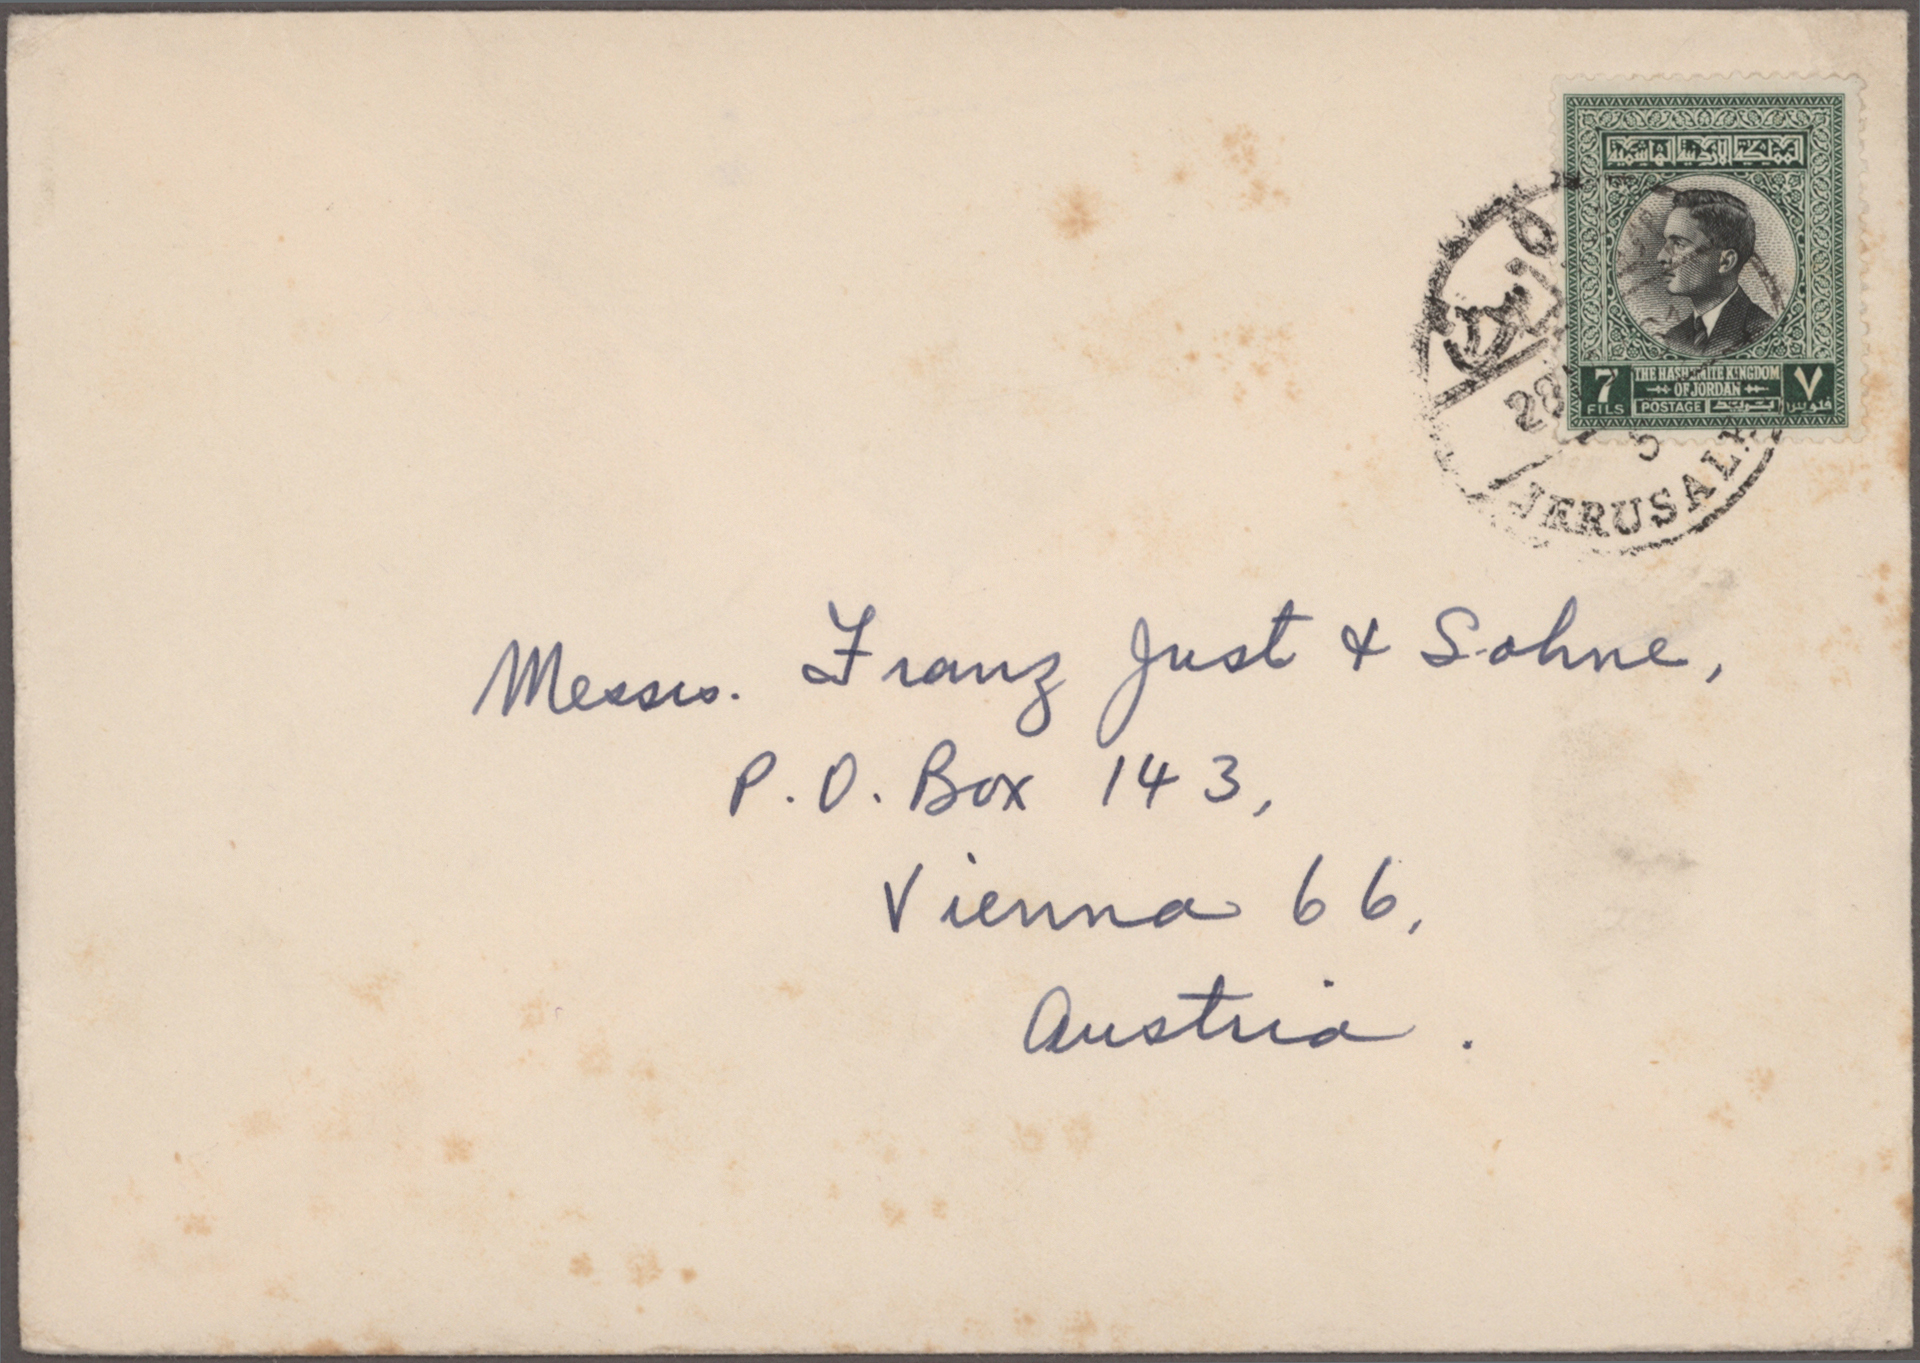 المملكة الاردنية الهاشمية
7 THE HASHEMITE KINGDOM ٧
FILS OF JORDAN فلوس
POSTAGE بريد
القدس
28
5
JERUSALEM
Messrs. Franz Just & Sohne,
P. O. Box 143,
Vienna 66,
Austria.